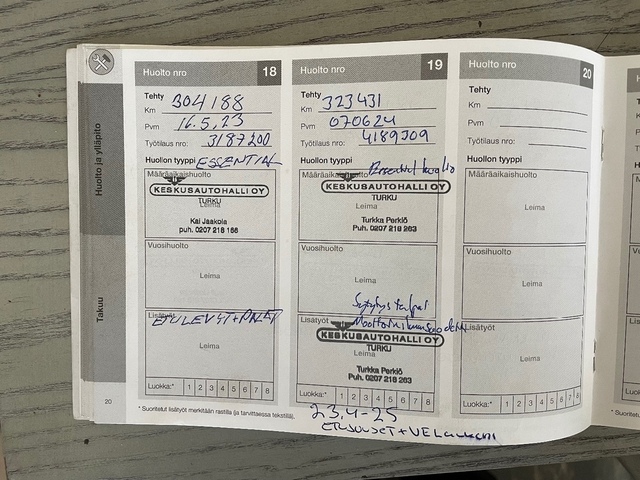 Huolto ja ylläpito
Takuu
Huolto nro 18
Tehty
Km 304188
Pvm 16.5.23
Työtilaus nro: 3187200
Huollon tyyppi ESSENTIAL
Määräaikaishuolto
KESKUSAUTOHALLI OY
TURKU
Leima
Kai Jaakola
puh. 0207 218 166
Vuosihuolto
Leima
Lisätyöt
ETULEVYT+PALAT
Leima
Luokka:* 1 2 3 4 5 6 7 8
20
* Suoritetut lisätyöt merkitään rastilla (ja tarvittaessa tekstillä).
Huolto nro 19
Tehty
Km 323431
Pvm 070624
Työtilaus nro: 4189309
Huollon tyyppi
Määräaikaishuolto
KESKUSAUTOHALLI OY
TURKU
Turkka Perkiö
puh. 0207 218 263
Vuosihuolto
Leima
Sytytystulpat
Lisätyöt
KESKUSAUTOHALLI OY
TURKU
Leima
Turkka Perkiö
Puh. 0207 218 263
Luokka:* 1 2 3 4 5 6 7 8
23.4-25
Huolto nro 20
Tehty
Km
Pvm
Työtilaus nro:
Huollon tyyppi
Määräaikaishuolto
Leima
Vuosihuolto
Leima
Lisätyöt
Leima
Luokka:* 1 2 3 4 5 6 7 8